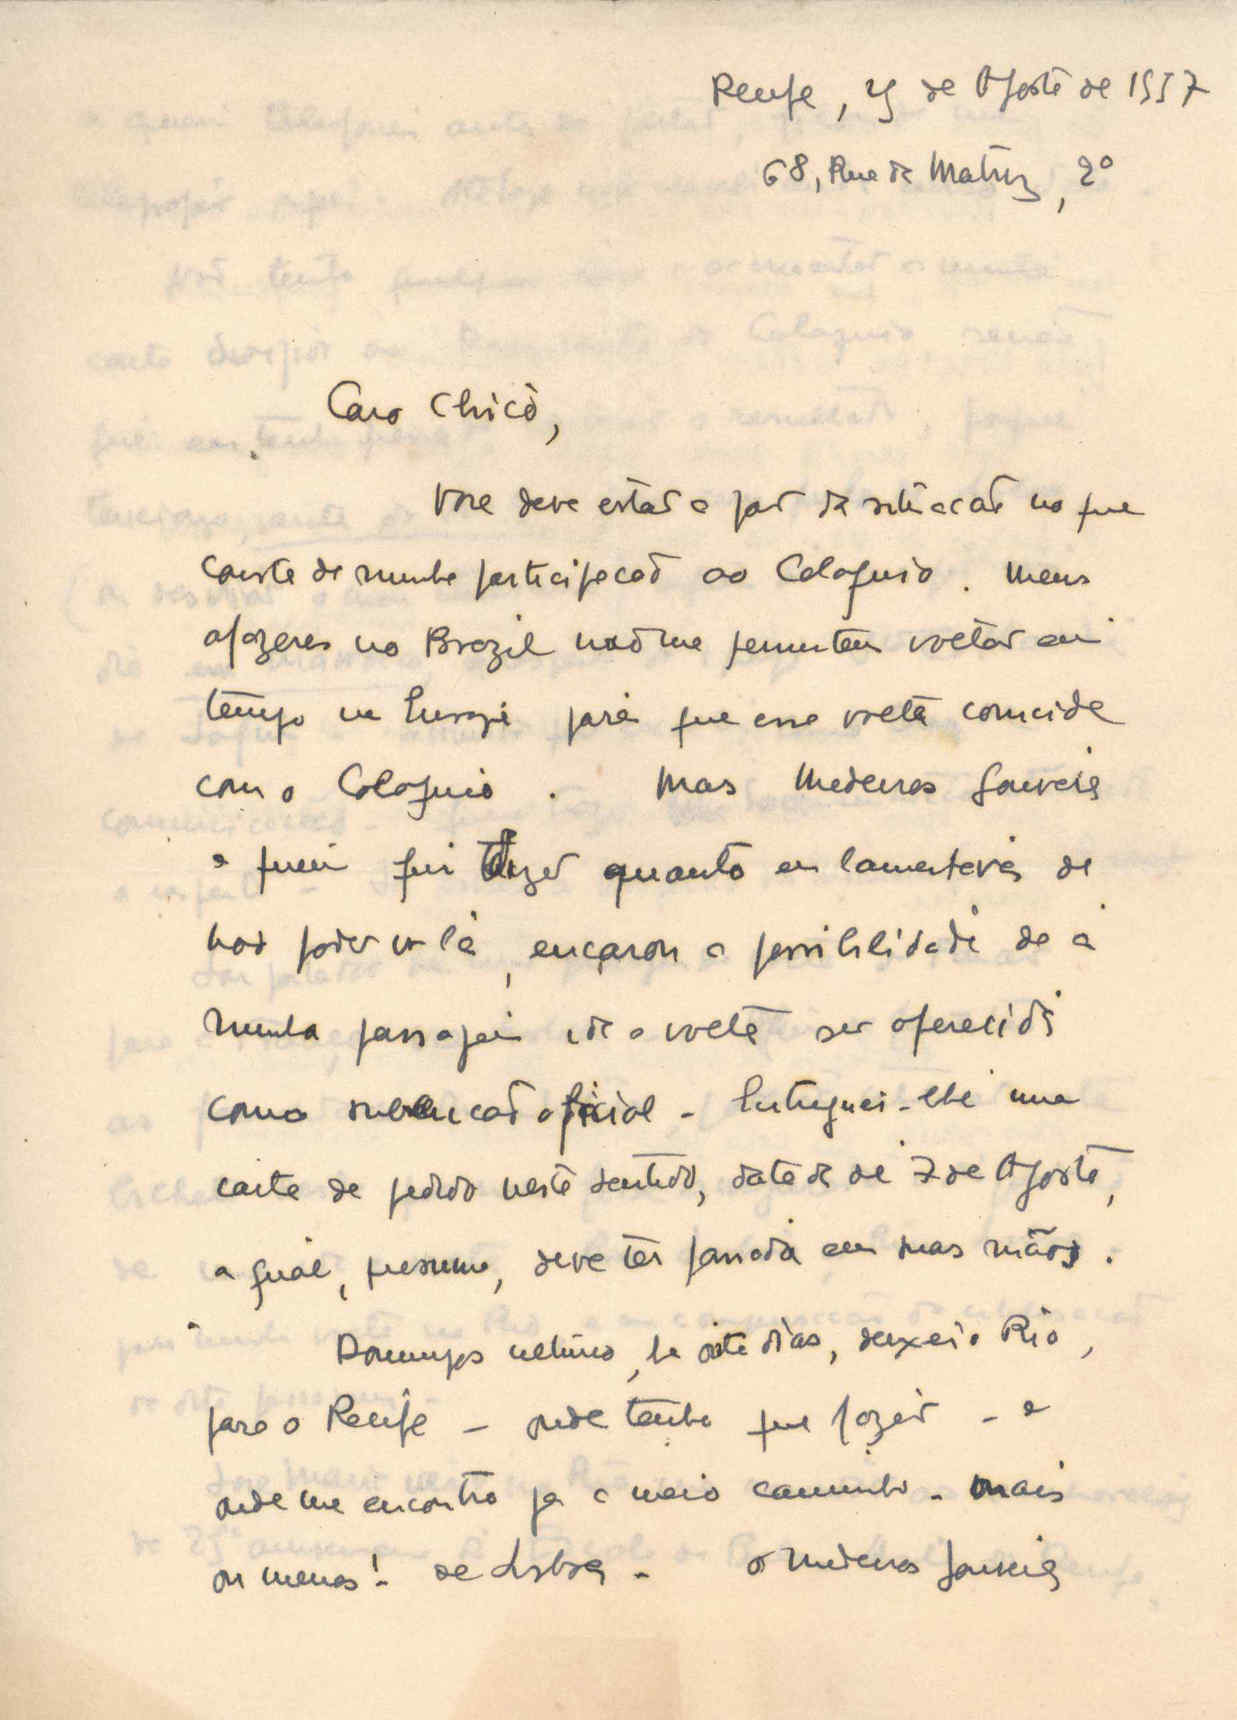 Recife, 25 de Agosto de 1957
68, Rua da Matriz, 2º
Caro Chicò,
Voce deve estar a par da situacaõ no que
conste de minha participacaõ ao Coloquio. Meus
afazeres no Brazil naõ me permitem voltar em
tempo na Europa para que essa volta coincida
com o Coloquio. Mas Medeiros Gouveia
a quem fui dizer quanto eu lamentava de
naõ poder ir là, encarou a possibilidade de a
minha passagem ida e volta ser oferecida
como subvencaõ oficial - Entreguei-lhe uma
carta de pedido neste sentido, datada de 7 de Agosto,
a qual, presumo, deve ter passada em suas mãos.
Domingo ultimo, ha oito dias, deixei o Rio,
para o Recife - onde tenho que fazer - e
onde me encontro ja a meio caminho - mais
ou menos! - de Lisboa - o Medeiros Gouveia